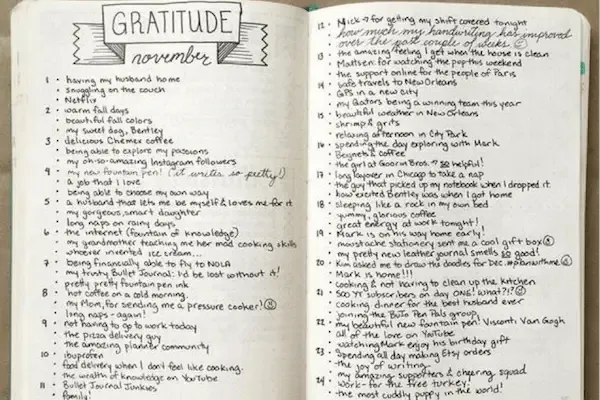 GRATITUDE
november
1 • having my husband home
• snuggling on the couch
• Netflix
2 • warm fall days
• beautiful fall colors
• my sweet dog, Bentley
3 • delicious Chemex coffee
• being able to explore my passions
• my oh-so-amazing Instagram followers
4 • my new fountain pen! (it writes so pretty!)
• a job that I love
• being able to choose my own way
5 • a husband that lets me be myself & loves me for it
• my gorgeous, smart daughter
• long naps on rainy days
6 • the internet (fountain of knowledge)
• my grandmother teaching me her mad cooking skills
• whoever invented ice cream...
7 • being financially able to fly to NOLA
• my trusty Bullet Journal: I'd be lost without it!
• pretty pretty fountain pen ink
8 • hot coffee on a cold morning.
• my Mom, for sending me a pressure cooker!
• long naps - again!
9 • not having to go to work today
• the pizza delivery guy
• the amazing planner community
10 • ibuprofen
• food delivery when I don't feel like cooking.
• the wealth of knowledge on YouTube
11 • Bullet Journal Junkies
• family
12 • Mick → for getting my shift covered tonight
• how much my handwriting has improved
over the past couple of weeks
• the amazing feeling I get when the house is clean
13 • Mattsen: for watching the pup this weekend
• the support online for the people of Paris
14 • safe travels to New Orleans
• GPS in a new city
• my Gators being a winning team this year
15 • beautiful weather in New Orleans
• shrimp & grits
• relaxing afternoon in City Park
16 • spending the day exploring with Mark
• Beignets & coffee
• the girl at Goorin Bros. → so helpful!
17 • long layover in Chicago to take a nap
• the guy that picked up my notebook when I dropped it
• how excited Bentley was when I got home
18 • sleeping like a rock in my own bed
• yummy, glorious coffee
• great energy at work tonight!
19 • Mark is on his way home early!
• moustache stationery sent me a cool gift box
• my pretty new leather journal smells so good!
20 • Kim asked me to draw the doodles for Dec. #planwithme
• Mark is home!!!
• cooking & not having to clean up the kitchen
21 • 500 YT subscribers on day ONE! What?!?
• cooking dinner for the best husband ever
• joining the BuJo Pen Pals group
22 • my beautiful new fountain pen! Visconti Van Gogh
• all of the love on YouTube
• watching Mark enjoy his birthday gift
23 • Spending all day making Etsy orders
• the joy of writing
• my amazing supporters & cheering squad
24 • Work - for the free turkey!
• the most cuddly puppy in the world!